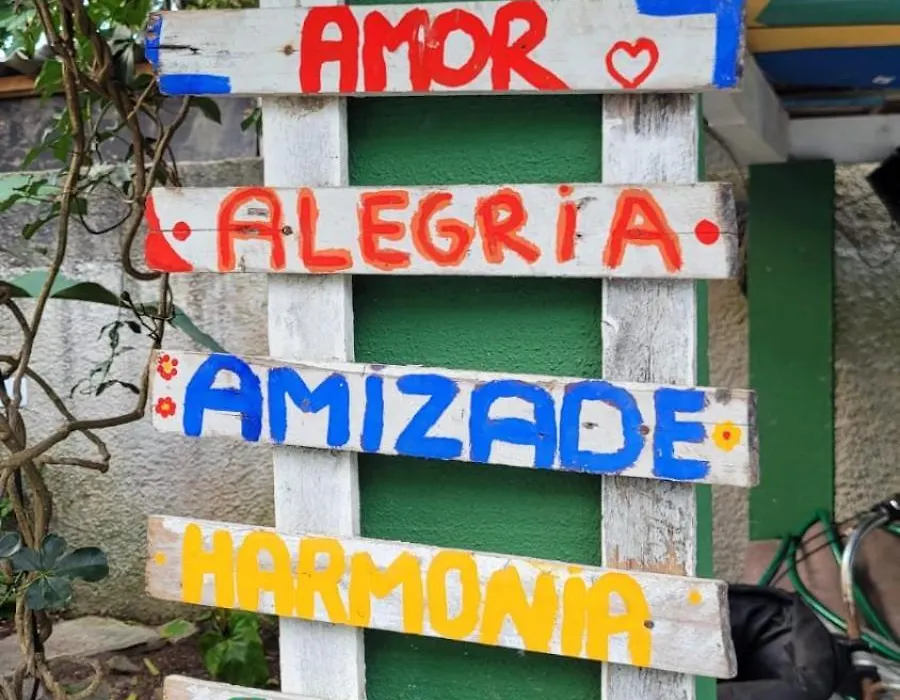 AMOR
ALEGRIA
AMIZADE
HARMONIA